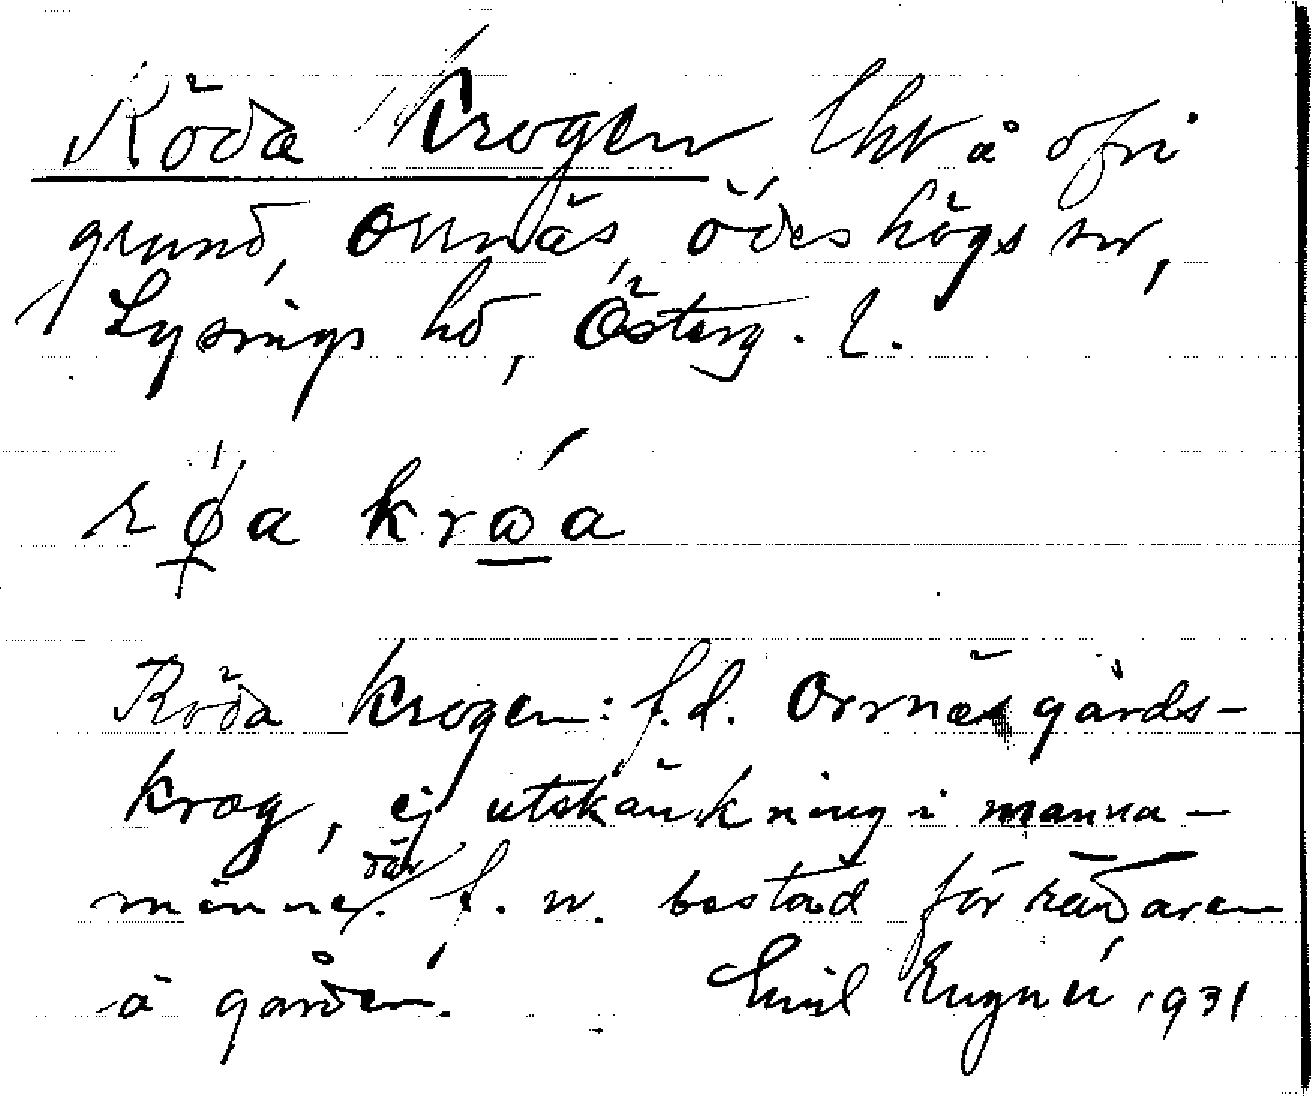 Röda Krogen lht å ofri
grund, Orrnäs, Ödeshögs sn,
Lysings hd, Österg. l.
rǿ̱a krώ̱a
Röda Krogen: f.d. Orrnäs gårds-
krog, ej utskänkning i manna-
minne där. f. n. bostad för rättaren
å gården. Emil Eugnér 1931